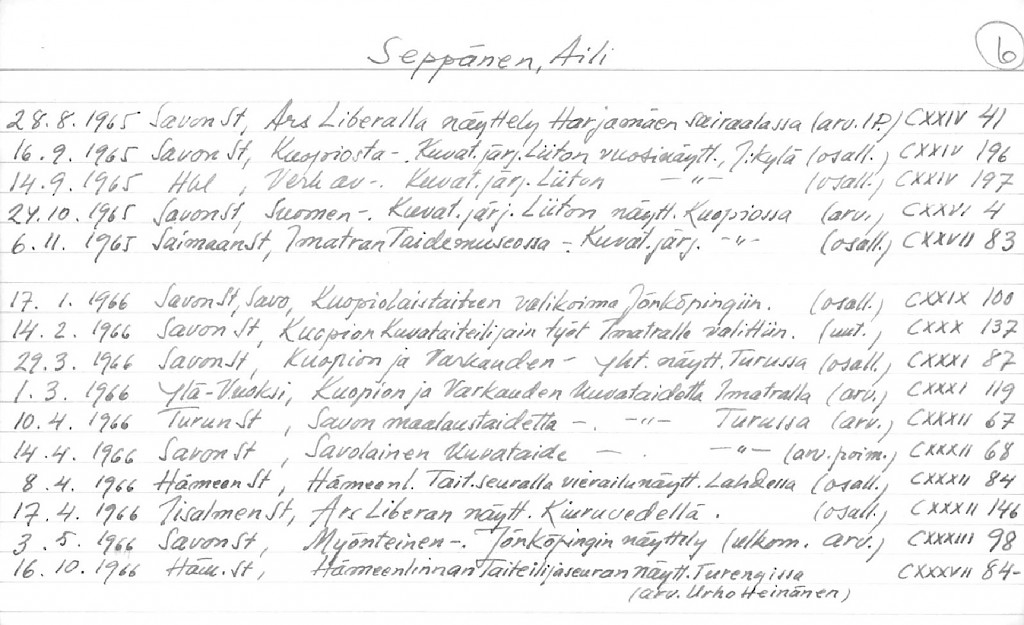 Seppänen, Aili
6
28.8.1965 Savon St, Ars Liberalla näyttely Harjamäen sairaalassa (arv. I.P.) CXXIV 41
16.9.1965 Savon St, Kuopiosta -. Kuvat.järj.Liiton vuosinäytt., J:kylä (osall.) CXXIV 196
14.9.1965 Hbl , Verk av -. Kuvat.järj.Liiton — " — (osall.) CXXIV 197
24.10.1965 Savon St, Suomen -. Kuvat.järj.Liiton näytt. Kuopiossa (arv.) CXXVI 4
6.11.1965 Saimaan St, Imatran Taidemuseossa -. Kuvat.järj. - " - (osall.) CXXVII 83
17.1.1966 Savon St, Savo, Kuopiolaistaiteen valikoima Jönköpingiin. (osall.) CXXIX 100
14.2.1966 Savon St, Kuopion Kuvataiteilijain työt Imatralle valittiin. (uut.) CXXX 137
29.3.1966 Savon St, Kuopion ja Varkauden - yht. näytt. Turussa (osall.) CXXXI 87
1.3.1966 Ylä-Vuoksi, Kuopion ja Varkauden kuvataidetta Imatralla (arv.) CXXXI 119
10.4.1966 Turun St , Savon maalaustaidetta -. - " - Turussa (arv.) CXXXII 67
14.4.1966 Savon St , Savolainen kuvataide — . - " - (arv. poim.) CXXXII 68
8.4.1966 Hämeen St , Hämeenl. Tait.seuralla vierailunäytt. Lahdessa (osall.) CXXXII 84
17.4.1966 Iisalmen St, Ars Liberan näytt. Kiuruvedellä. (osall.) CXXXII 146
3.5.1966 Savon St, Myönteinen -. Jönköpingin näyttely (ulkom. arv.) CXXXIII 98
16.10.1966 Häm. St, Hämeenlinnan Taiteilijaseuran näytt. Turengissa CXXXVII 84-
(arv. Urho Heinänen)